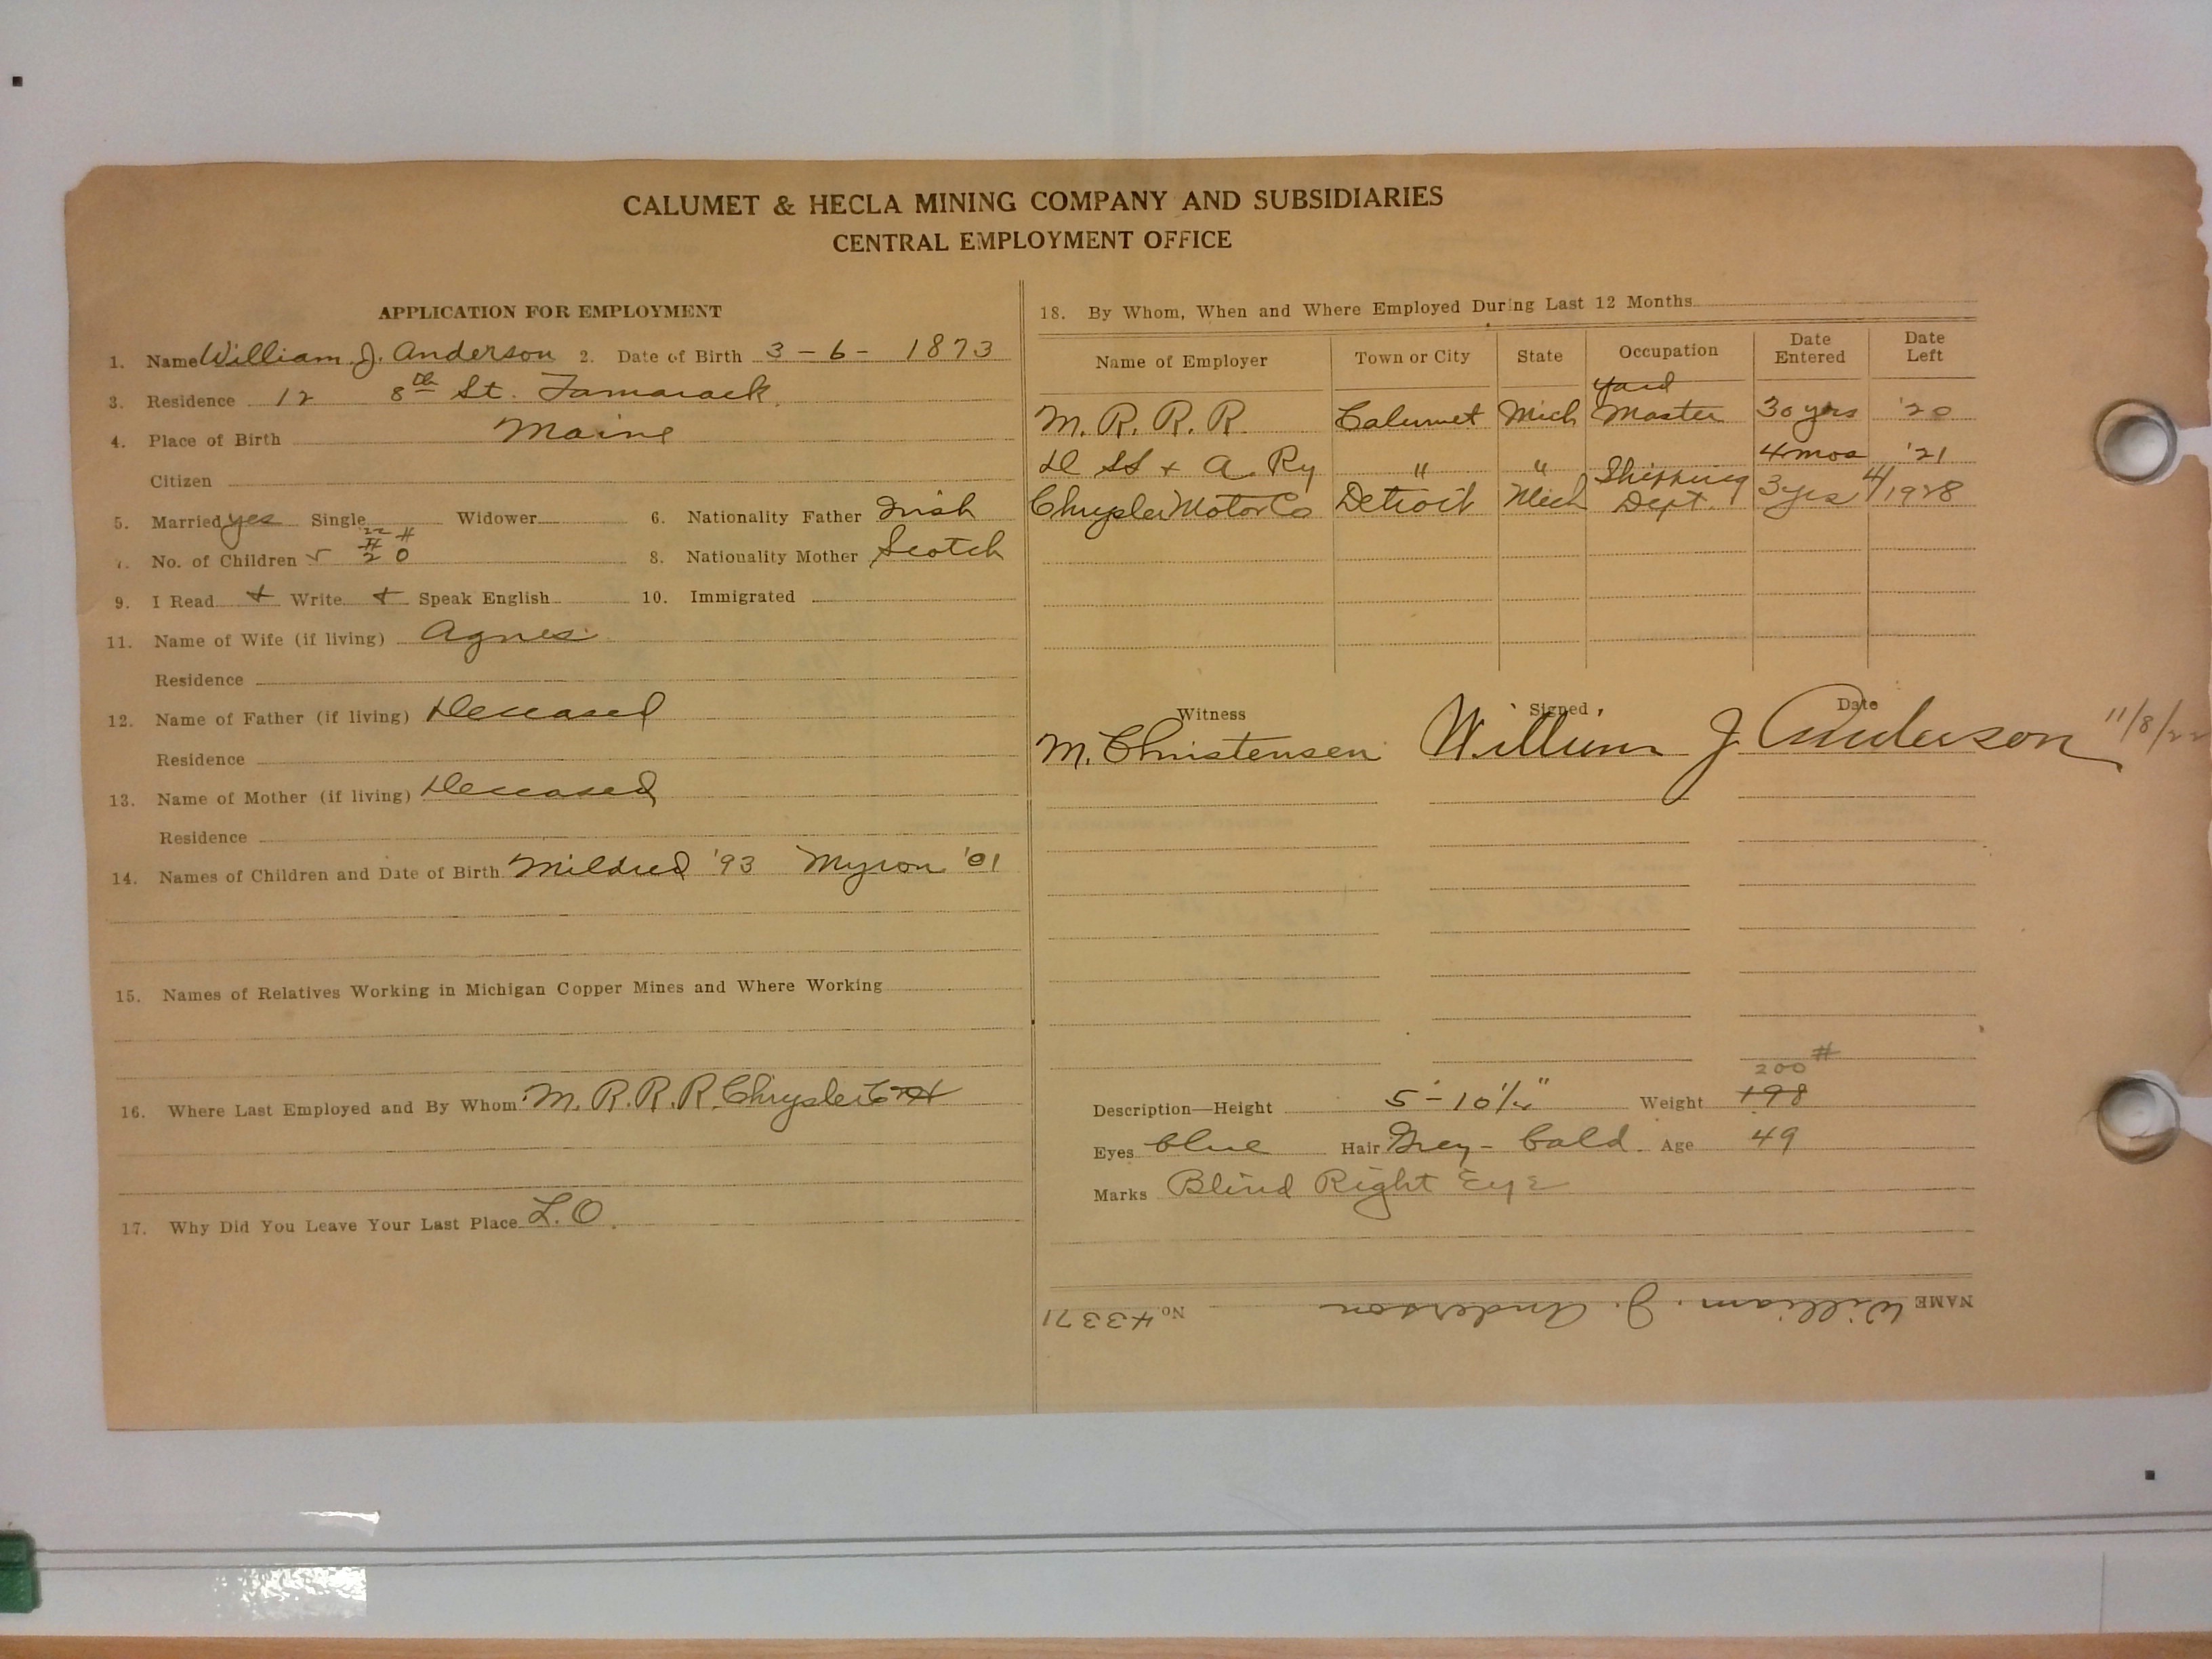 CALUMET & HECLA MINING COMPANY AND SUBSIDIARIES
CENTRAL EMPLOYMENT OFFICE
APPLICATION FOR EMPLOYMENT
1. Name William J. Anderson 2. Date of Birth 3 - 6 - 1873
3. Residence 12 8th St. Tamarack.
4. Place of Birth Maine
Citizen
5. Married yes Single Widower 6. Nationality Father Irish
7. No. of Children 20 8. Nationality Mother Scotch
9. I Read + Write + Speak English 10. Immigrated
11. Name of Wife (if living) Agnes
Residence
12. Name of Father (if living) Deceased
Residence
13. Name of Mother (if living) Deceased
Residence
14. Names of Children and Date of Birth Mildred '93 Myron '01
15. Names of Relatives Working in Michigan Copper Mines and Where Working
16. Where Last Employed and By Whom M. R. R. R. Chrysler
17. Why Did You Leave Your Last Place L.O.
18. By Whom, When and Where Employed During Last 12 Months
Name of Employer Town or City State Occupation Date Entered Date Left
M. R. R. R. Calumet Mich Yard Master 30 yrs '20
D SS + A. Ry " " 4 mos '21
Chrysler Motor Co Detroit Mich Shipping Dept. 3 yrs 4/1928
Witness Signed Date
M. Christensen William J Anderson 11/8/22
200 #
Description—Height 5'-10½" Weight 198
Eyes blue Hair Grey - bald. Age 49
Marks Blind Right Eye
NAME William. J. Anderson No. 43371